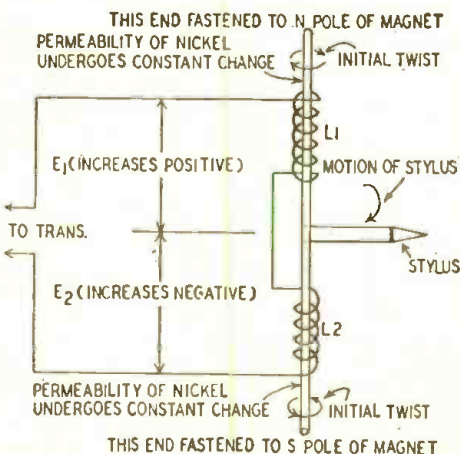 THIS END FASTENED TO N POLE OF MAGNET
PERMEABILITY OF NICKEL
UNDERGOES CONSTANT CHANGE
INITIAL TWIST
L1
E1 (INCREASES POSITIVE)
MOTION OF STYLUS
TO TRANS.
STYLUS
E2 (INCREASES NEGATIVE)
L2
PERMEABILITY OF NICKEL
UNDERGOES CONSTANT CHANGE
INITIAL TWIST
THIS END FASTENED TO S POLE OF MAGNET